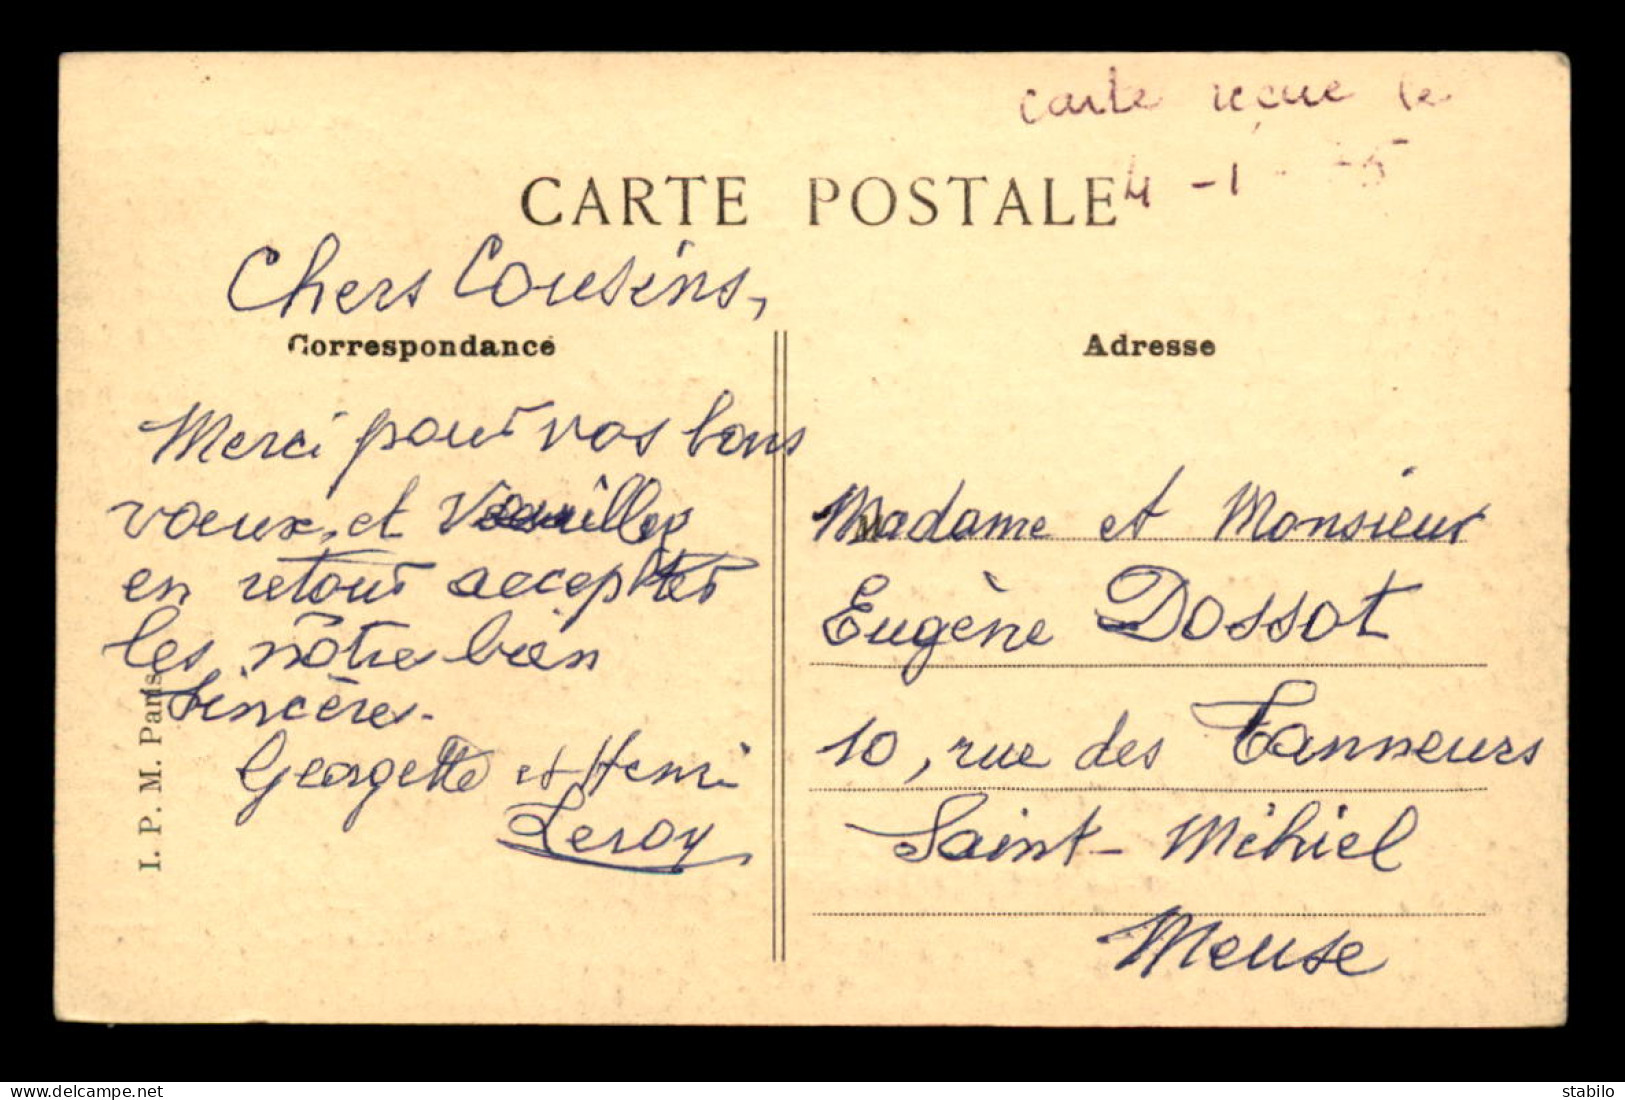 carte reçue le
4 - 1 -
CARTE POSTALE
Chers Cousins,
Correspondance
Merci pour vos bons
vœux, et Veuillez
en retour accepter
les nôtres bien
Sincères.
Georgette et Henri
Leroy
I. P. M. Paris
Adresse
Madame et Monsieur
Eugène Dossot
10, rue des Tanneurs
Saint-Mihiel
Meuse
stabilo